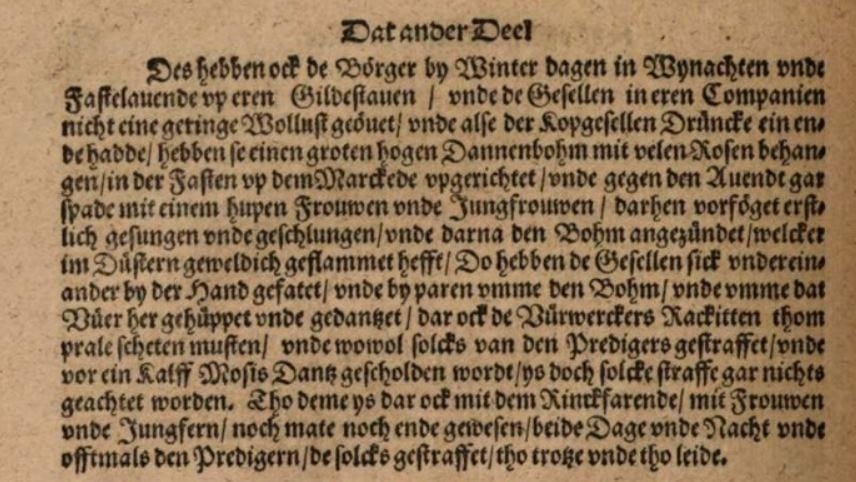 Dat ander Deel
Des hebben ock de Börger by Winter dagen in Wynachten vnde
Fastelauende vp eren Gildestauen / vnde de Gesellen in eren Companien
nicht eine geringe Wollust geöuet/ vnde alse der Kopgesellen Drüncke ein en⸗
de hadde/ hebben se einen groten hogen Dannenbohm mit velen Rosen behan⸗
gen/ in der Fasten vp dem Marckede vpgerichtet / vnde gegen den Auendt gar
spade mit einem hupen Frouwen vnde Jungfrouwen / darhen vorföget erst⸗
lich gesungen vnde geschlungen/ vnde darna den Bohm angezündet/ welcker
im Düstern geweldich geflammet hefft/ Do hebben de Gesellen sick vnderein⸗
ander by der Hand gefatet/ vnde by paren vmme den Bohm/ vnde vmme dat
Vüer her gehüppet vnde gedantzet / dar ock de Vürwerckers Rackitten thom
prale scheten musten/ vnde wowol solcks van den Predigers gestraffet/ vnde
vor ein Kalff Mosis Dantz gescholden wordt/ ys doch solcke straffe gar nichts
geachtet worden. Tho deme ys dar ock mit dem Rinckfarende/ mit Frouwen
vnde Jungfern/ noch mate noch ende gewesen/ beide Dage vnde Nacht vnde
offtmals den Predigern/ de solcks gestraffet/ tho trotze vnde tho leide.